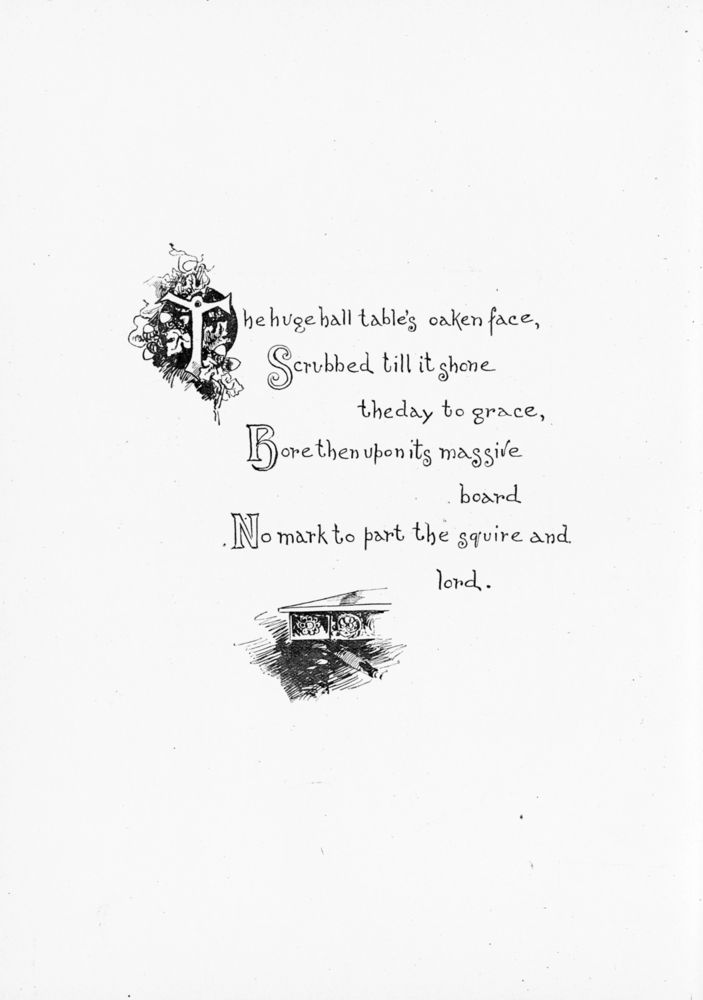 The huge hall table's oaken face,
Scrubbed till it shone
the day to grace,
Bore then upon its massive
board
No mark to part the squire and
lord.